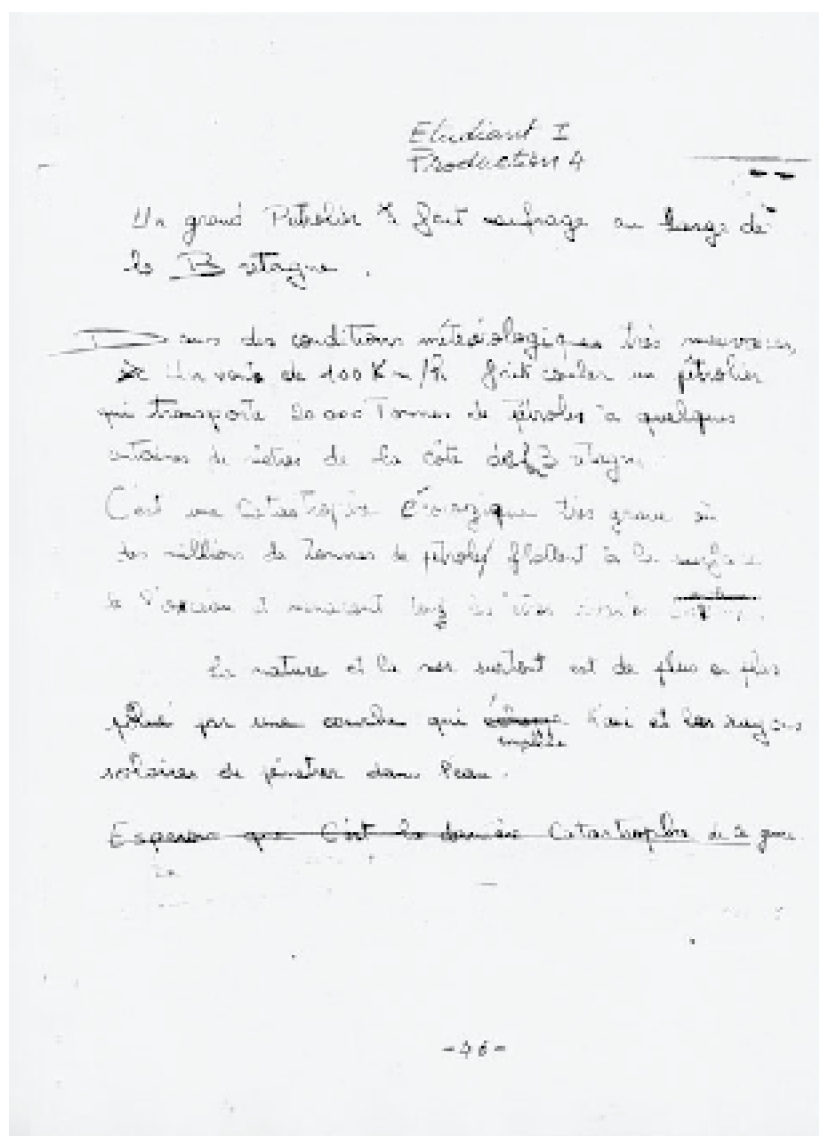 Etudiant I
Production 4
Un grand Pétrolier fait naufrage au large de
la Bretagne.
Dans des conditions météorologiques très mauvaises,
Un vent de 100 Km/h fait couler un pétrolier
qui transporte 20 000 Tonnes de pétroles à quelques
de mètres de la côte de Bretagne
C'est une Catastrophe très grave où
des million de Tonnes de pétroles flottent à la surface
de l'océan et menacent
La nature et la mer surtout est de plus en plus
polué par une couche qui empêche l'air et les rayons
solaires de pénétrer dans l'eau.
Esperons que C'est la dernière Catastrophe de ce genre
-46-